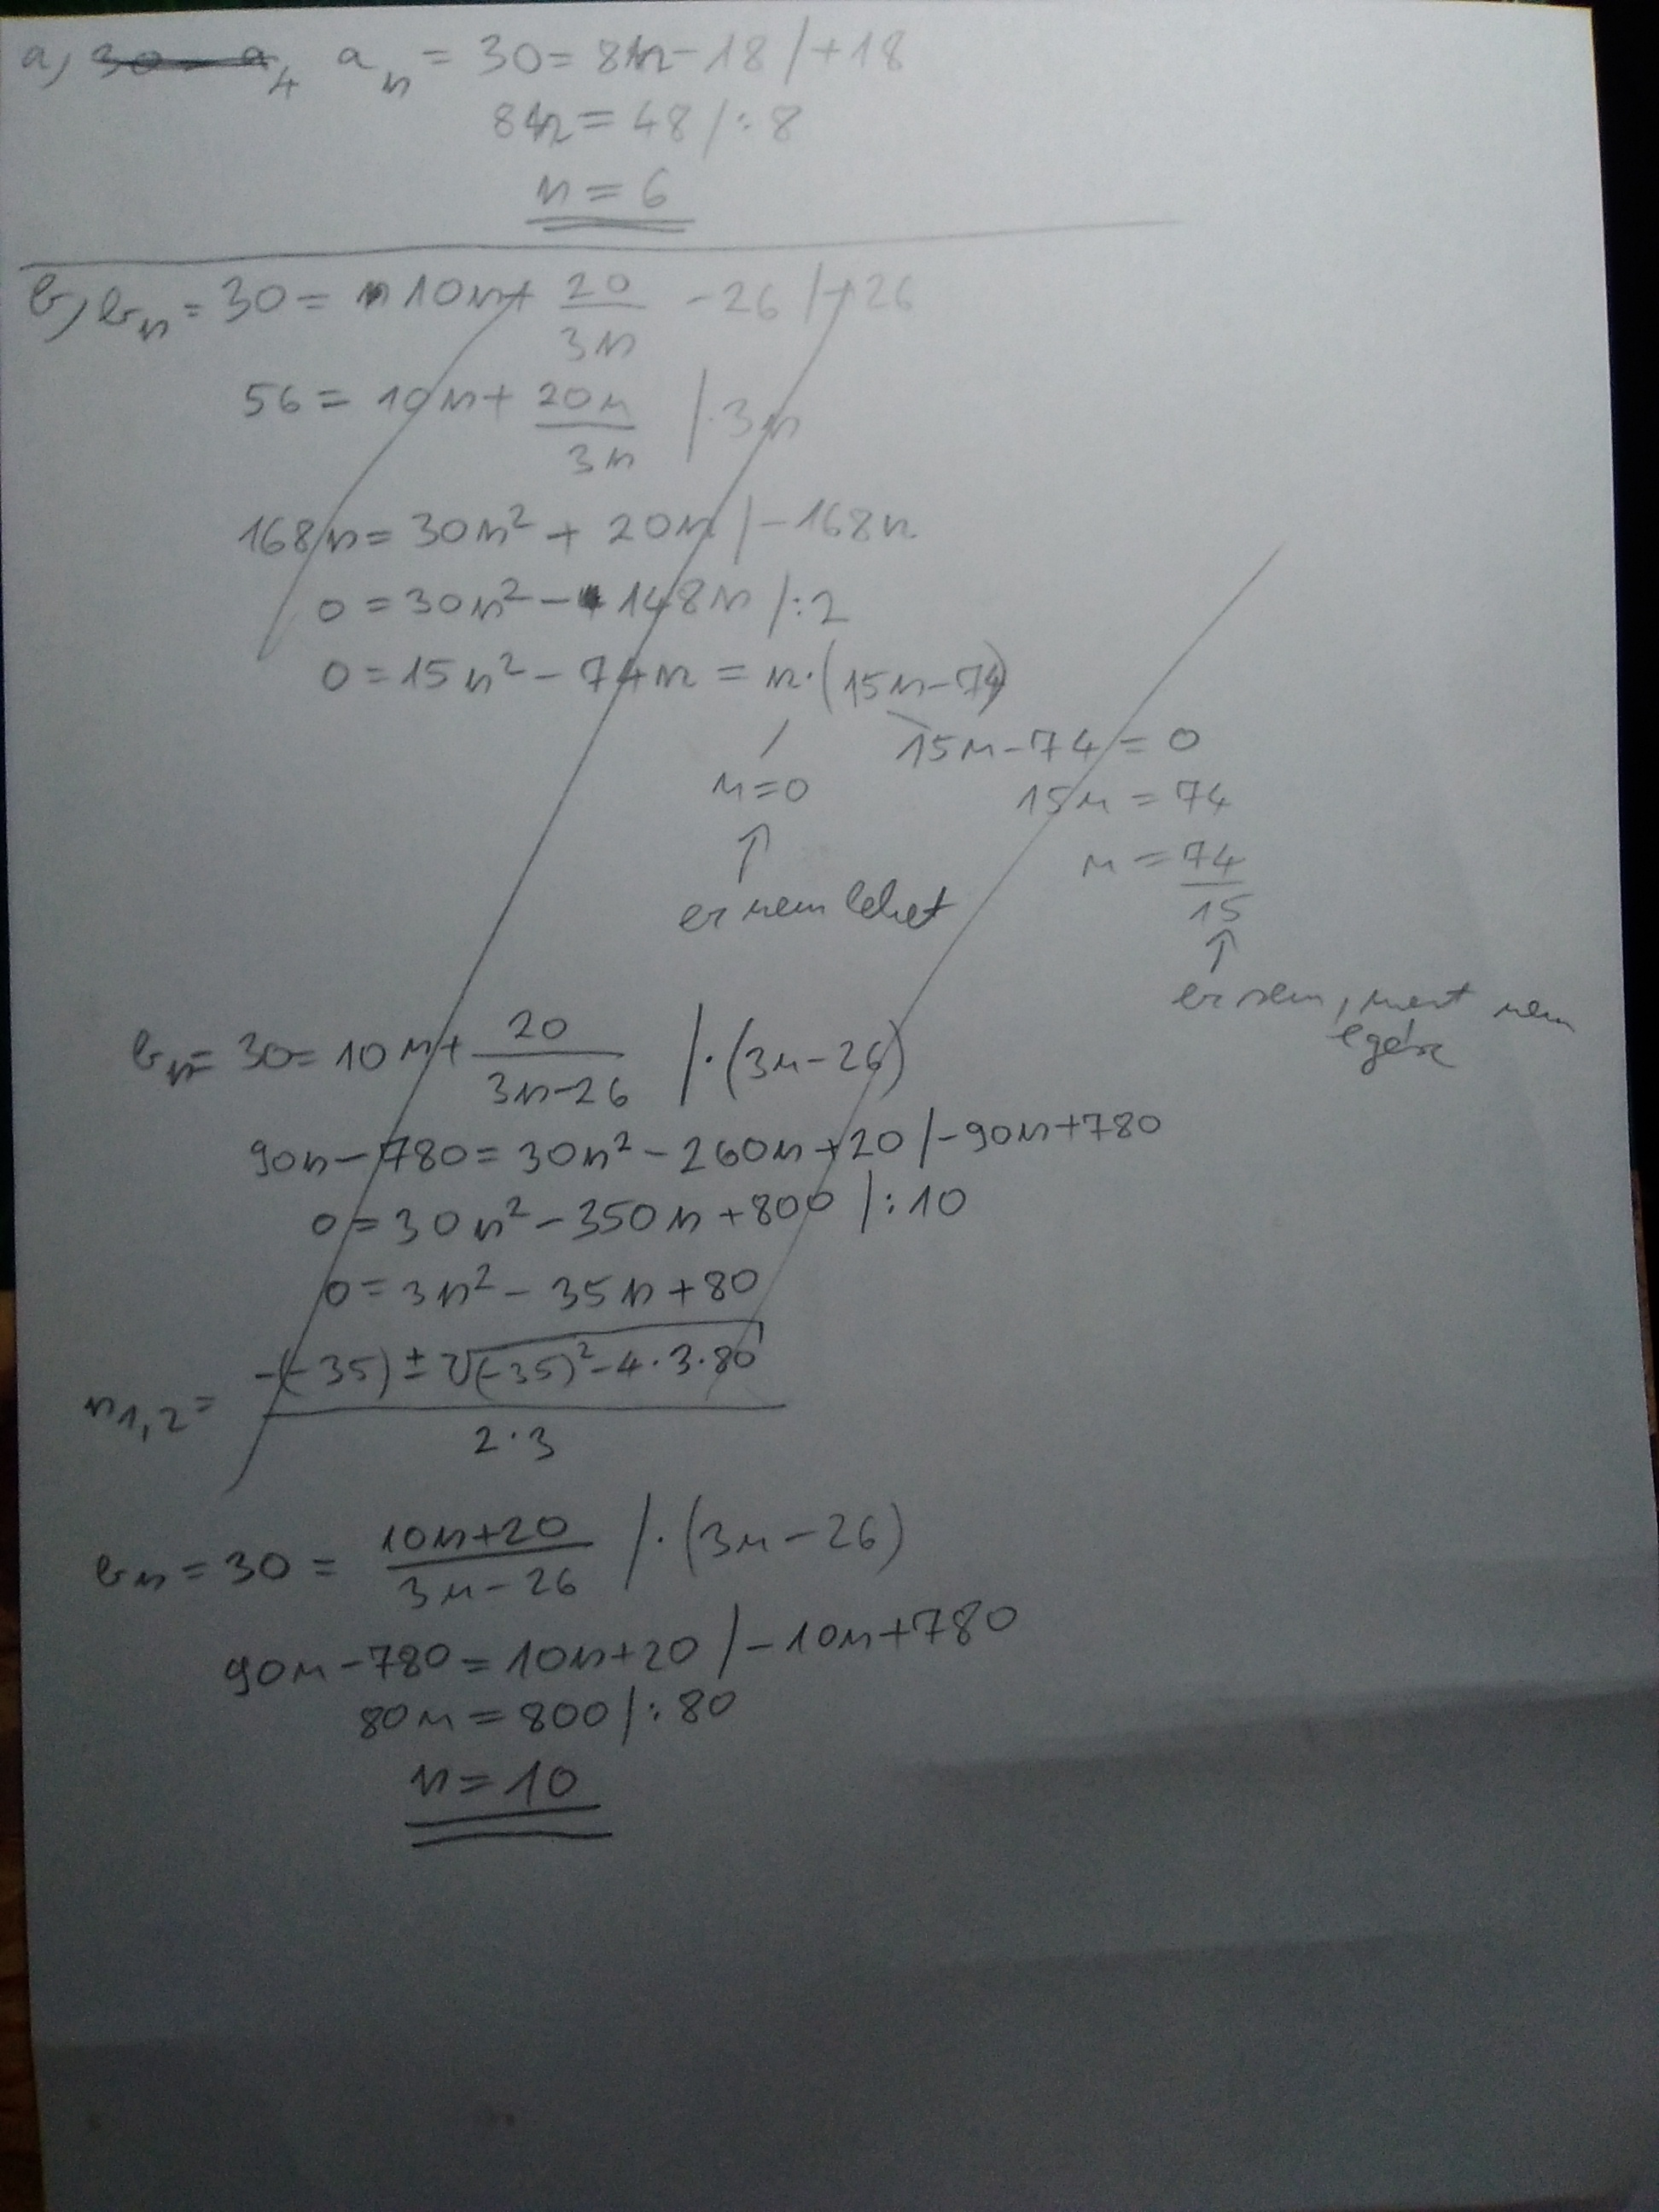 a, 30 = a₄ aₙ = 30 = 8n - 18 / +18
8n = 48 / : 8
n = 6
b, bₙ = 30 = 10n + 20/3n - 26 / +26
56 = 10n + 20n/3n / · 3n
168n = 30n² + 20n / -168n
0 = 30n² - 148n / : 2
0 = 15n² - 74n = n · (15n - 74)
15n - 74 = 0
n = 0
15n = 74
n = 74/15
ez nem lehet
ez sem, mert nem
egész
bₙ = 30 = 10n + 20/3n-26 / · (3n - 26)
90n - 780 = 30n² - 260n + 20 / -90n + 780
0 = 30n² - 350n + 800 / : 10
0 = 3n² - 35n + 80
n₁,₂ = -(-35) ± √(-35)² - 4 · 3 · 80 / 2 · 3
bₙ = 30 = 10n+20/3n-26 / · (3n - 26)
90n - 780 = 10n + 20 / -10n + 780
80n = 800 / : 80
n = 10